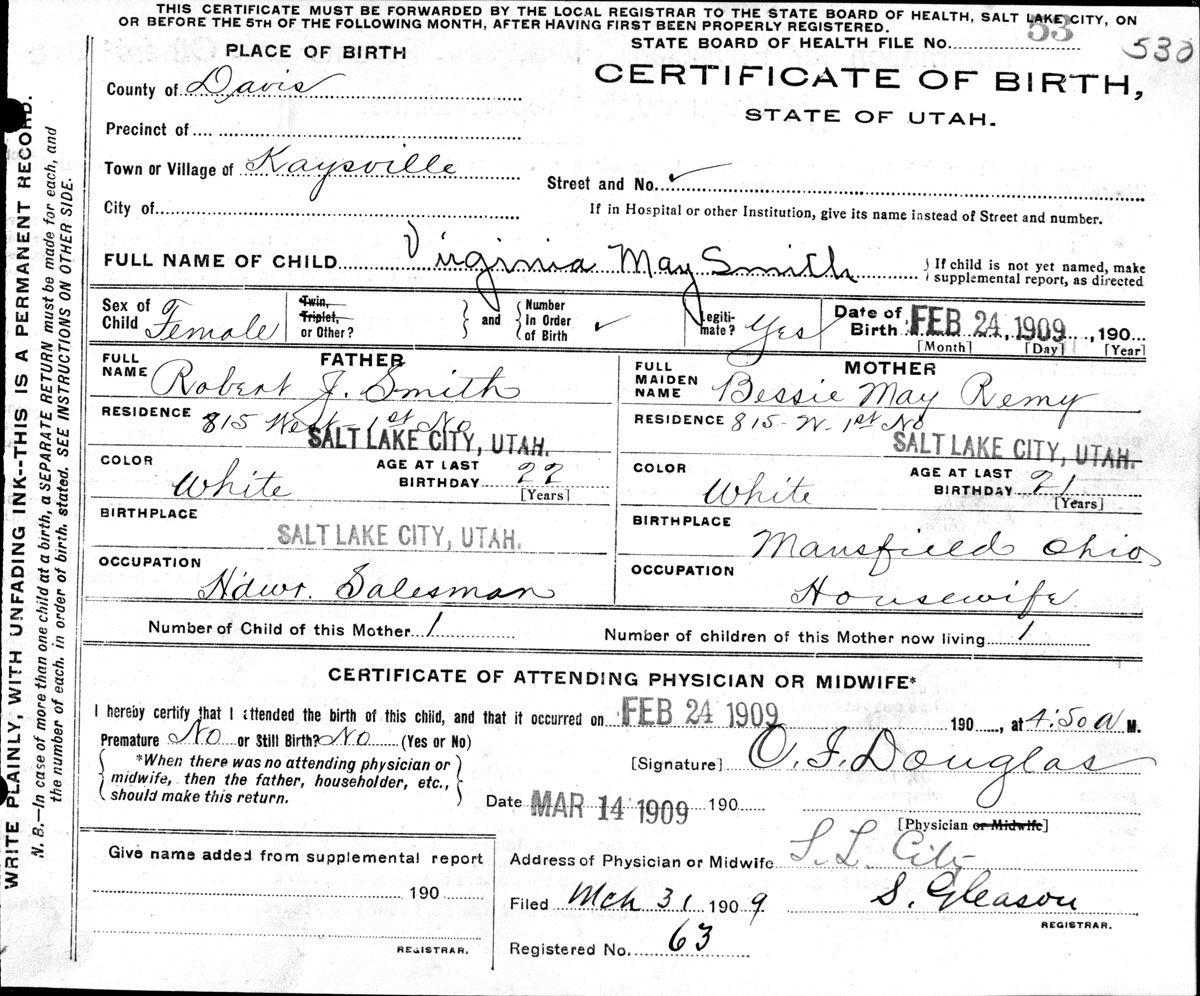 THIS CERTIFICATE MUST BE FORWARDED BY THE LOCAL REGISTRAR TO THE STATE BOARD OF HEALTH, SALT LAKE CITY, ON
OR BEFORE THE 5TH OF THE FOLLOWING MONTH, AFTER HAVING FIRST BEEN PROPERLY REGISTERED.
STATE BOARD OF HEALTH FILE No. 53
530
PLACE OF BIRTH
CERTIFICATE OF BIRTH,
STATE OF UTAH.
County of Davis
Precinct of
Town or Village of Kaysville
Street and No. ✓
City of
If in Hospital or other Institution, give its name instead of Street and number.
FULL NAME OF CHILD Virginia May Smith
If child is not yet named, make
supplemental report, as directed
Sex of
Child Female
Twin,
Triplet,
or Other?
and
Number
in Order
of Birth ✓
Legiti-
mate? Yes
Date of
Birth FEB 24 1909, 190
[Month] [Day] [Year]
FATHER
FULL
NAME Robert J. Smith
RESIDENCE 815 West 1st No
SALT LAKE CITY, UTAH.
COLOR White
AGE AT LAST
BIRTHDAY 22
[Years]
BIRTHPLACE
SALT LAKE CITY, UTAH.
OCCUPATION
Hdwr. Salesman
MOTHER
FULL
MAIDEN
NAME Bessie May Remy
RESIDENCE 815-W. 1st No
SALT LAKE CITY, UTAH.
COLOR White
AGE AT LAST
BIRTHDAY 21
[Years]
BIRTHPLACE
Mansfield Ohio
OCCUPATION
Housewife
Number of Child of this Mother 1
Number of children of this Mother now living 1
CERTIFICATE OF ATTENDING PHYSICIAN OR MIDWIFE*
I hereby certify that I attended the birth of this child, and that it occurred on FEB 24 1909 190, at 4:50 a M.
Premature No or Still Birth? No (Yes or No)
*When there was no attending physician or
midwife, then the father, householder, etc.,
should make this return.
[Signature] O. J. Douglas
Date MAR 14 1909 190
[Physician or Midwife]
Give name added from supplemental report
190
REGISTRAR.
Address of Physician or Midwife S. L. City
Filed Mch 31 1909
S. Gleason
REGISTRAR.
Registered No. 63
WRITE PLAINLY, WITH UNFADING INK--THIS IS A PERMANENT RECORD.
N. B.—In case of more than one child at a birth, a SEPARATE RETURN must be made for each, and
the number of each, in order of birth, stated. SEE INSTRUCTIONS ON OTHER SIDE.